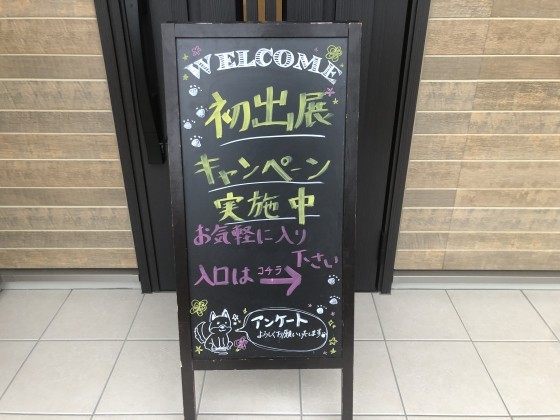 WELCOME
初出展
キャンペーン
実施中
お気軽に入り
下さい
入口は コチラ →
アンケート
よろしくお願いいたします